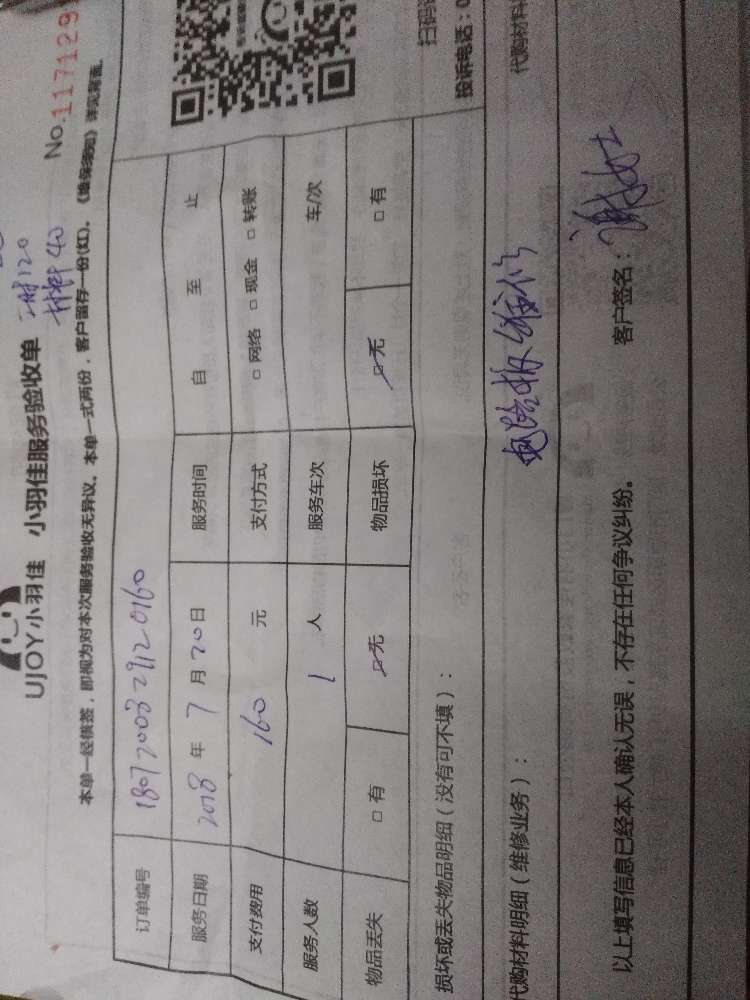 UJOY小羽佳 小羽佳服务验收单 工时120
材料40
No:117129
本单一经核签，即视为对本次服务验收无异议。本单一式两份，客户留存一份(红)。《维保须知》详见背面。
订单编号 1807200329120160
服务日期 2018年7月20日 服务时间 自 至 止
支付费用 160 元 支付方式 □网络 □现金 □转账
服务人数 1 人 服务车次 车/次
物品丢失 □有 □无 物品损坏 □无 □有
扫码
投诉电话：0
损坏或丢失物品明细（没有可不填）：
代购材料明细（维修业务）： 维修
代购材料
以上填写信息已经本人确认无误，不存在任何争议纠纷。 客户签名：谢